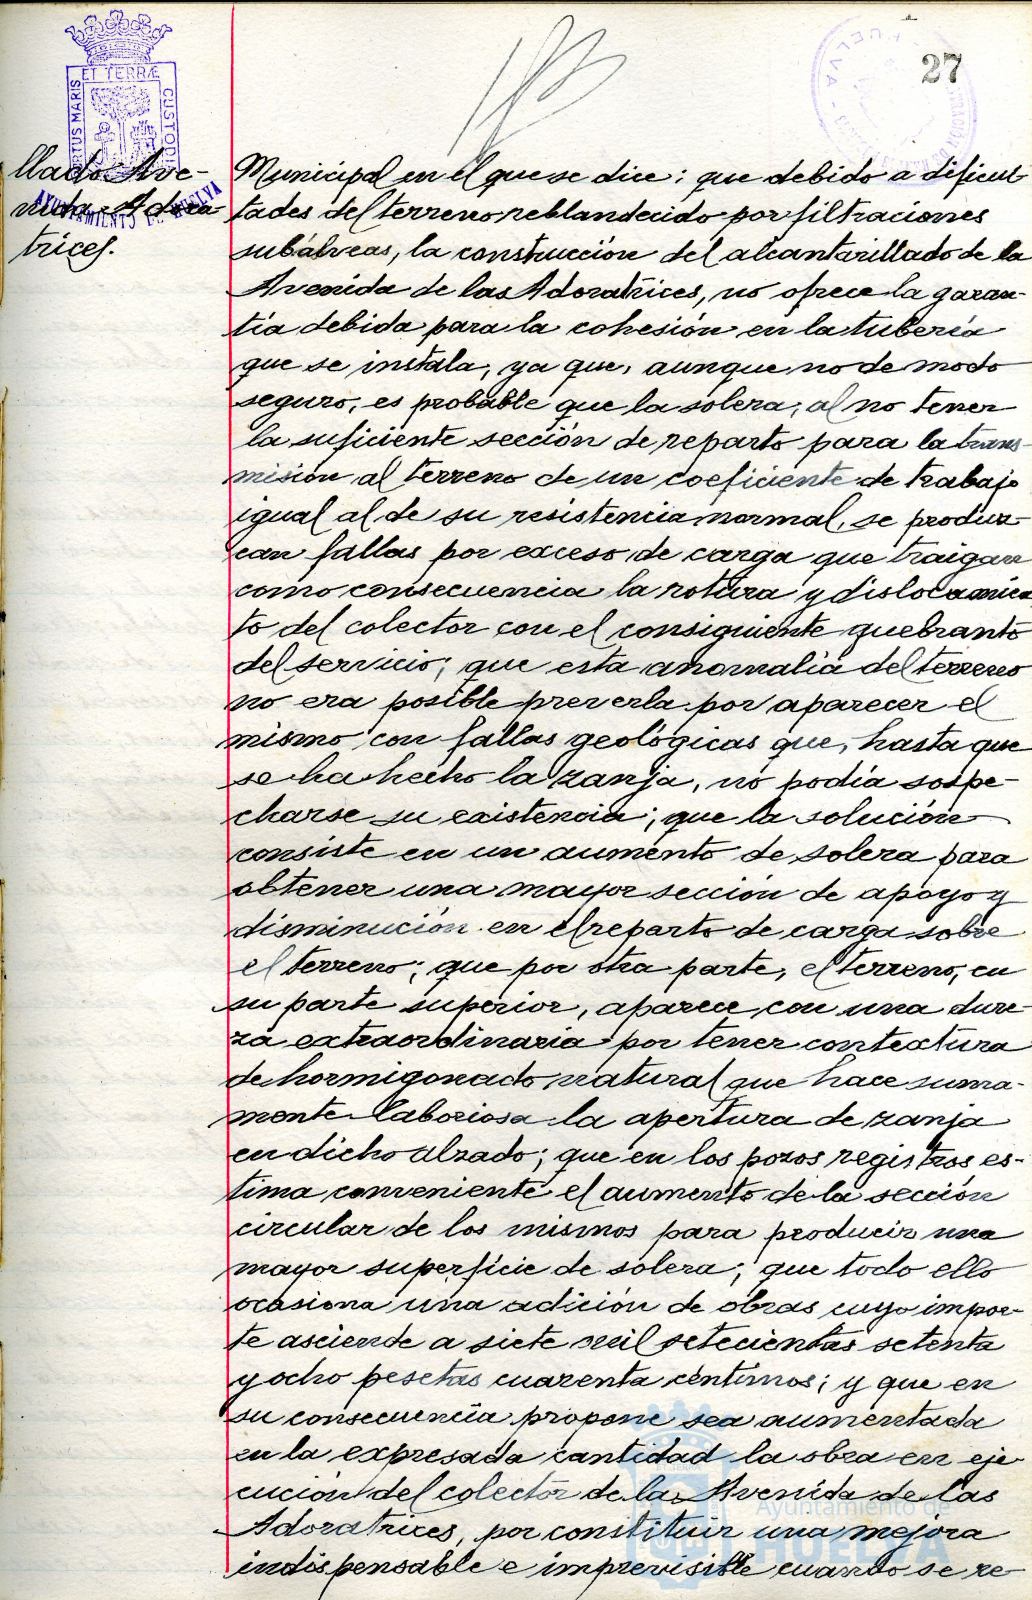 27
PORTUS MARIS
ET TERRÆ
CUSTODIA
AYUNTAMIENTO DE HUELVA
HUELVA
llado Ave-
nida Adora-
trices.
Municipal en el que se dice: que debido a dificul-
tades del terreno reblandecido por filtraciones
subálveas, la construcción del alcantarillado de la
Avenida de las Adoratrices, no ofrece la garan-
tía debida para la cohesión en la tubería
que se instala, ya que, aunque no de modo
seguro, es probable que la solera, al no tener
la suficiente sección de reparto para la trans-
misión al terreno de un coeficiente de trabajo
igual al de su resistencia normal, se produz-
can fallas por exceso de carga que traigan
como consecuencia la rotura y dislocamien-
to del colector con el consiguiente quebranto
del servicio; que esta anomalía del terreno
no era posible preverla por aparecer el
mismo con fallas geológicas que, hasta que
se ha hecho la zanja, no podía sospe-
charse su existencia; que la solución
consiste en un aumento de solera para
obtener una mayor sección de apoyo y
disminución en el reparto de carga sobre
el terreno; que por otra parte, el terreno, en
su parte superior, aparece con una dure-
za extraordinaria por tener contextura
de hormigonado natural que hace suma-
mente laboriosa la apertura de zanja
en dicho alzado; que en los pozos registros es-
tima conveniente el aumento de la sección
circular de los mismos para producir una
mayor superficie de solera; que todo ello
ocasiona una adición de obras cuyo impor-
te asciende a siete mil setecientas setenta
y ocho pesetas cuarenta céntimos; y que en
su consecuencia propone sea aumentada
en la expresada cantidad la obra en eje-
cución del colector de la Avenida de las
Adoratrices, por constituir una mejora
indispensable e imprevisible cuando se re-
Ayuntamiento de
HUELVA